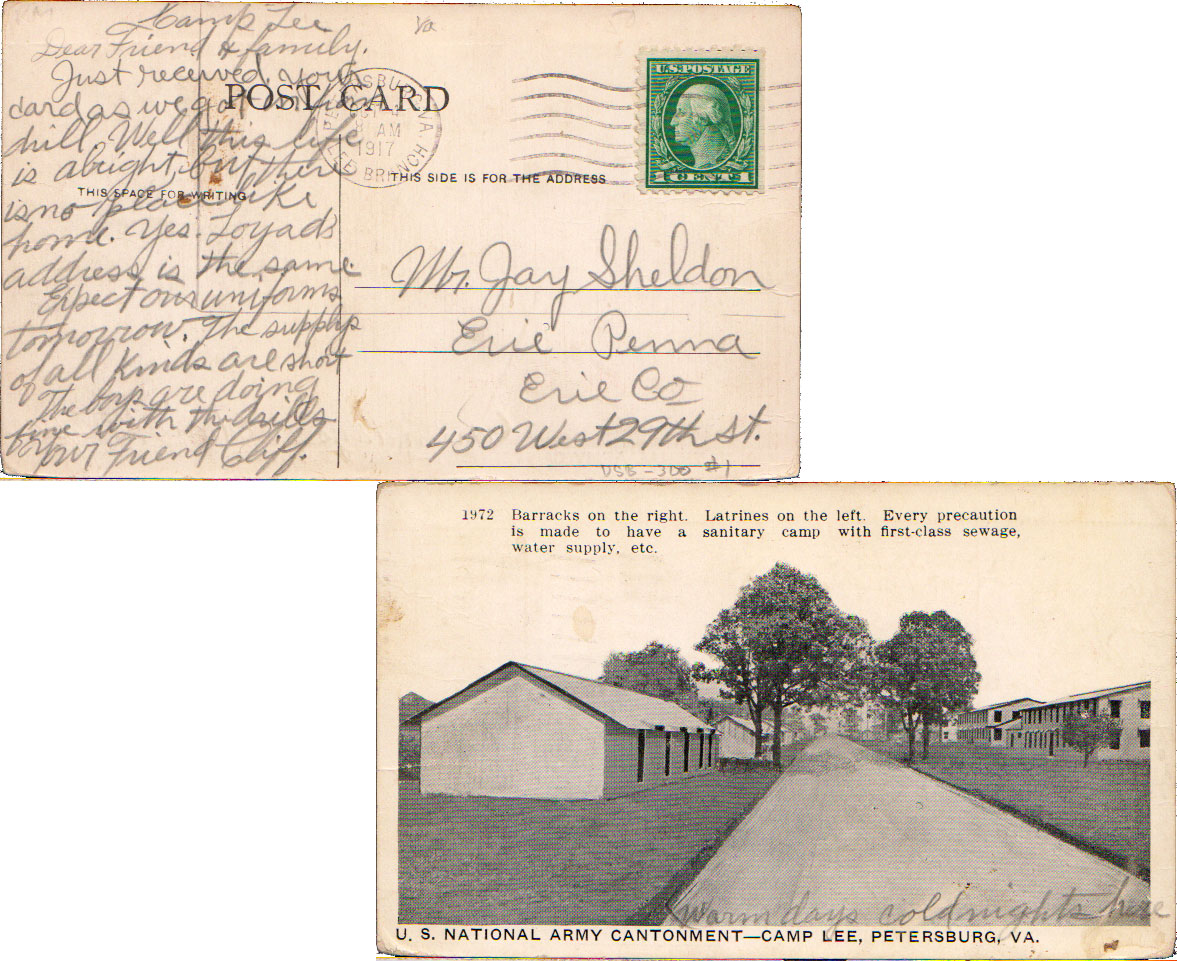 Camp Lee
Va
Dear Friend & family.
Just received your
card as we got in from
drill. Well this life
is alright, but there
is no place like
home. Yes. Loyads
address is the same
Expect our uniforms
tomorrow. The supplys
of all kinds are short
The boys are doing
fine with the drills
Your Friend Cliff.
POST CARD
THIS SPACE FOR WRITING
THIS SIDE IS FOR THE ADDRESS
PETERSBURG, VA.
8 AM
1917
BRANCH
U.S. POSTAGE
CENTS
Mr. Jay Sheldon
Erie Penna
Erie Co
450 West 29th St.
USB-300 #1
1972 Barracks on the right. Latrines on the left. Every precaution
is made to have a sanitary camp with first-class sewage,
water supply, etc.
warm days cold nights here
U. S. NATIONAL ARMY CANTONMENT—CAMP LEE, PETERSBURG, VA.